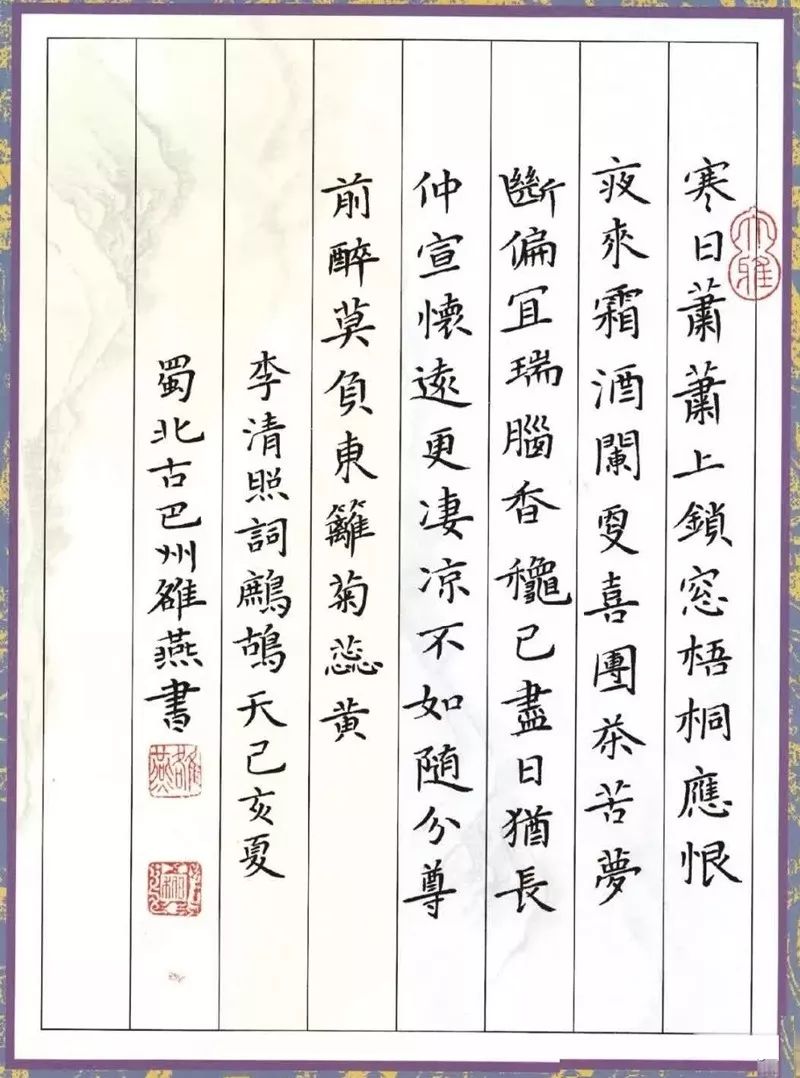 大雅
寒日蕭蕭上鎖窓梧桐應恨
夜來霜酒闌更喜團茶苦夢
斷偏宜瑞腦香龝已盡日猶長
仲宣懷遠更凄凉不如随分尊
前醉莫負東籬菊蕊黄
李清照詞鷓鴣天己亥夏
蜀北古巴州雒燕書
雒燕